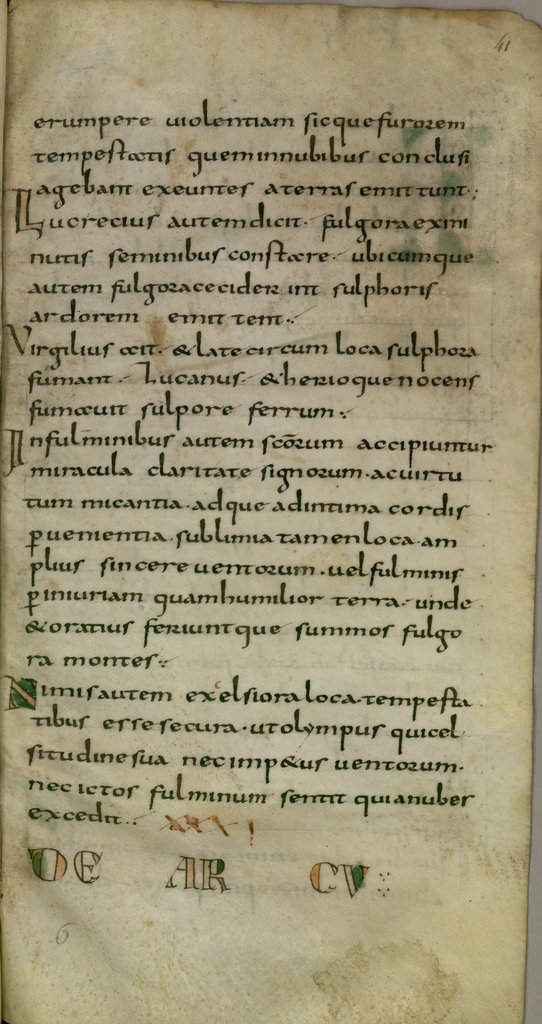 41
erumpere uiolentiam sicquefurorem
tempestatis queminnubibus conclusi
agebant exeuntes aterrasemittunt·;
Lucrecius autemdicit· fulgoraexmi
nutis seminibusconstare· ubicumque
autem fulgoraceciderint sulphoris
ardorem emittent··
Virgilius ait· &latecircum locasulphora
fumant· Lucanus· &herioquenocens
fumauit sulpore ferrum·,
Infulminibus autem scōrum accipiuntur
miracula claritate signorum·acuirtu
tum micantia·adque adintima cordis
ꝑuenientia·sublimiatamenloca·am
plius sincereuentorum·uelfulminis
ꝑiniuriam quamhumilior terra·unde
&oratius feriuntque summos fulgo
ra montes·,
Nimisautem exelsioraloca·tempesta
tibus essesecura·utolympus quicel
situdinesua necimp&us uentorum·
nec ictos fulminum sentit quianuber
excedit·· XXXI
DE ARCV
6